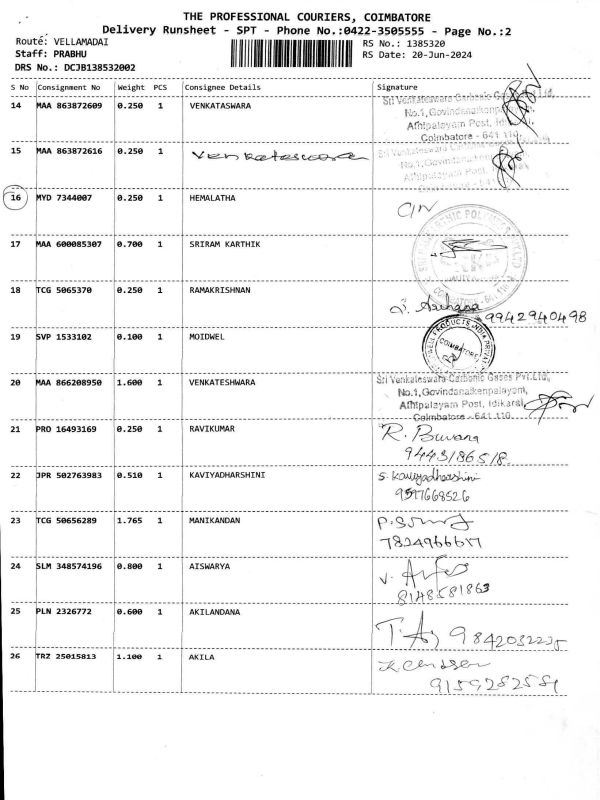 THE PROFESSIONAL COURIERS, COIMBATORE
Delivery Runsheet - SPT - Phone No.:0422-3505555 - Page No.:2
Route: VELLAMADAI
Staff: PRABHU
DRS No.: DCJB138532002
RS No.: 1385320
RS Date: 20-Jun-2024
S No Consignment No Weight PCS Consignee Details Signature
14 MAA 863872609 0.250 1 VENKATASWARA
Sri Venkateswara Carbonic Gases Pvt. Ltd,
No.1, Govindanaikenpalayam,
Athipalayam Post, Idikarai,
Coimbatore - 641 110.
15 MAA 863872616 0.250 1 Venkateswara
Sri Venkateswara Carbonic
No.1, Govindanaikenpalayam,
Athipalayam Post,
16 MYD 7344007 0.250 1 HEMALATHA
17 MAA 600085307 0.700 1 SRIRAM KARTHIK
18 TCG 5065370 0.250 1 RAMAKRISHNAN
9942940498
19 SVP 1533102 0.100 1 MOIDWEL
PRODUCTS INDIA PRIVATE
COIMBATORE
20 MAA 866208950 1.600 1 VENKATESHWARA
Sri Venkateswara Carbonic Gases Pvt.Ltd,
No.1, Govindanaikenpalayam,
Athipalayam Post, Idikarai,
Coimbatore - 641 110.
21 PRO 16493169 0.250 1 RAVIKUMAR
R. Buvana
9443186518
22 JPR 502763983 0.510 1 KAVIYADHARSHINI
S. Kaviyadharshini
9597668526
23 TCG 50656289 1.765 1 MANIKANDAN
7824966617
24 SLM 348574196 0.800 1 AISWARYA
8148581863
25 PLN 2326772 0.600 1 AKILANDANA
9842032235
26 TRZ 25015813 1.100 1 AKILA
9159282581